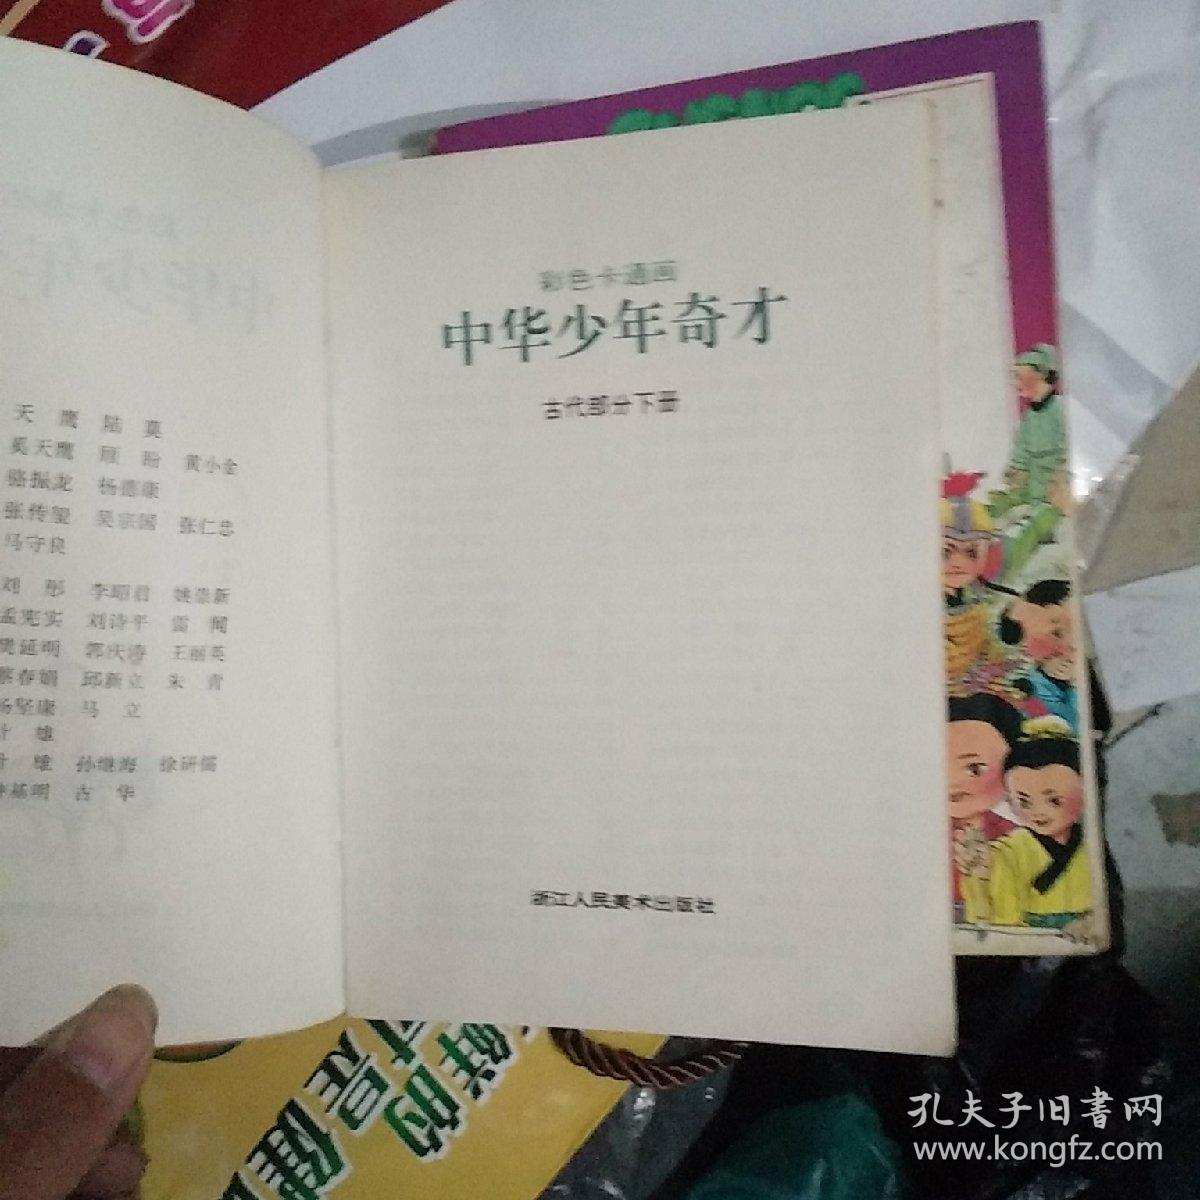 天 鹰 陆 莫
奚天鹰 顾 盼 黄小金
骆振龙 杨德康
张传玺 吴宗国 张仁忠
马守良
刘 彤 李昭君 姚崇新
孟宪实 刘诗平 雷 闻
樊延明 郭庆涛 王丽英
蔡春娟 邱新立 朱 青
杨坚康 马 立
叶 雄
叶 雄 孙继海 徐研儒
钟基明 古 华
彩色卡通画
中华少年奇才
古代部分下册
浙江人民美术出版社
鲜的
才是健
孔夫子旧書网
www.kongfz.com